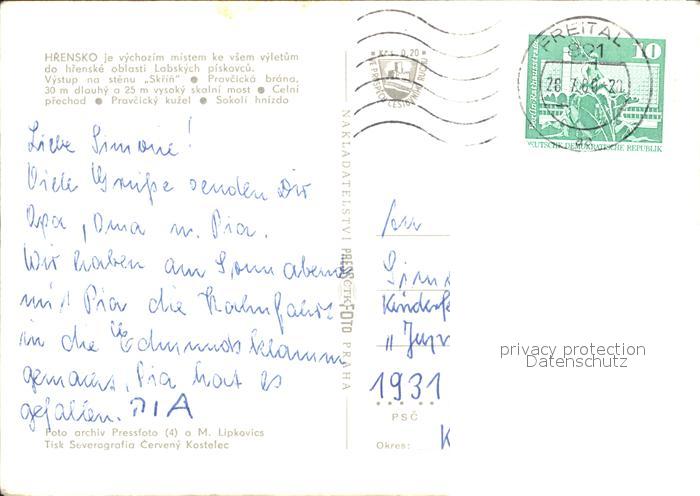 HŘENSKO je výchozím místem ke všem výletům
do hřenské oblasti Labských pískovců.
Výstup na stěnu „Skříň" ● Pravčická brána,
30 m dlouhý a 25 m vysoký skalní most ● Čelní
přechod ● Pravčický kužel ● Sokolí hnízdo
Kčs 0,20
FREITAL
821
DEUTSCHE DEMOKRATISCHE REPUBLIK
10
Liebe Simone!
Viele Grüße senden Dir
Opa, Oma u. Pia.
Wir haben am Sonnabend
mit Pia die Kahnfahrt
in die Edmundsklamm
gemacht. Pia hat es
gefallen. PIA
NAKLADATELSTVÍ PRESSFOTO PRAHA
ČTK
An
Sim
Kinderfe
1931
PSČ
Okres: K
privacy protection
Datenschutz
Foto archiv Pressfoto (4) a M. Lipkovics
Tisk Severografia Červený Kostelec